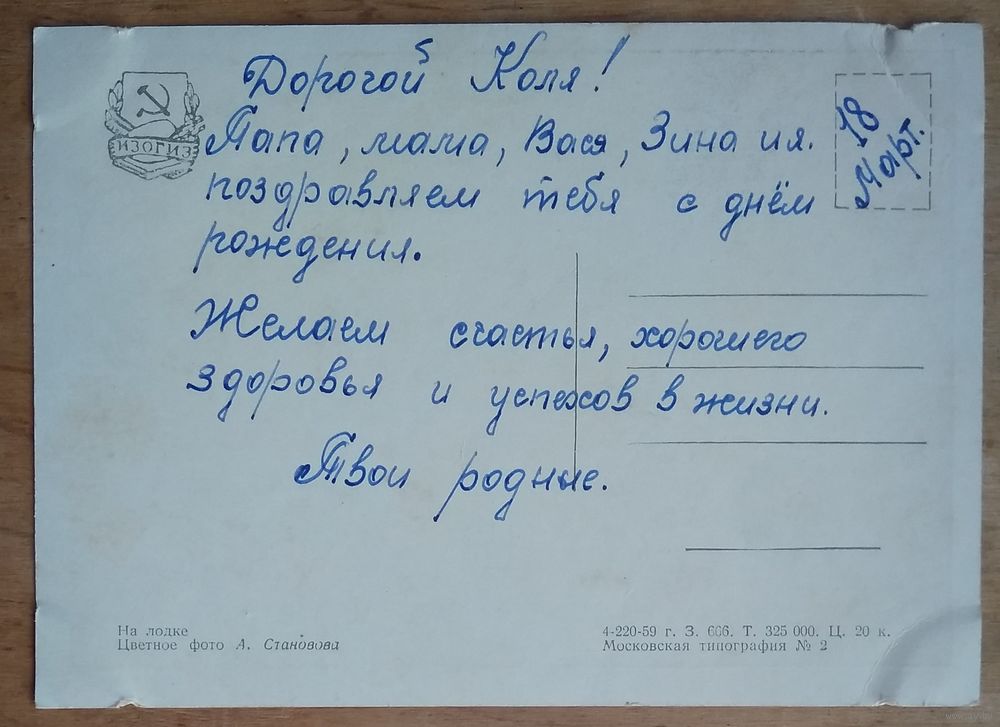 Дорогой Коля!
Папа, мама, Вася, Зина и я.
поздравляем тебя с днём
рождения.
Желаем счастья, хорошего
здоровья и успехов в жизни.
Твои родные.
18
Март.
ИЗОГИЗ
На лодке
Цветное фото А. Становова
4-220-59 г. З. 666. Т. 325 000. Ц. 20 к.
Московская типография № 2